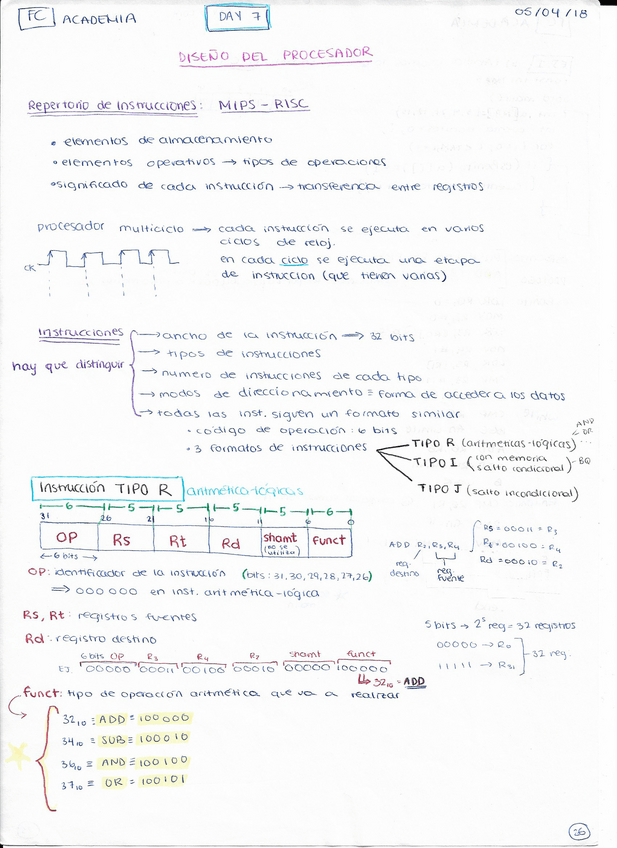 FC ACADEMIA
DAY 7
05/04/18
DISEÑO DEL PROCESADOR
Repertorio de instrucciones: MIPS - RISC
• elementos de almacenamiento
• elementos operativos → tipos de operaciones
• significado de cada instrucción → transferencia entre registros
procesador multiciclo → cada instrucción se ejecuta en varios
ciclos de reloj.
en cada ciclo se ejecuta una etapa
de instruccion (que tienen varias)
CK
Instrucciones
hay que distinguir
→ ancho de la instrucción → 32 bits
→ tipos de instrucciones
→ numero de instucciones de cada tipo
→ modos de direccionamiento ≡ forma de acceder a los datos
→ todas las inst. siguen un formato similar
• código de operación: 6 bits
• 3 formatos de instrucciones
TIPO R (aritmeticas-lógicas)
AND
OR
...
TIPO I (con memoria
salto condicional) - BQ
TIPO J (salto incondicional)
Instrucción TIPO R aritmético-lógicas
6 5 5 5 5 6
31 26 21 16 11 6 0
OP Rs Rt Rd shamt (no se utiliza) funct
← 6 bits →
ADD R2, R3, R4
reg. destino
reg. fuente
Rs = 00011 = R3
Rt = 00100 = R4
Rd = 00010 = R2
OP: identificador de la instrucción (bits: 31,30,29,28,27,26)
⇒ 000000 en inst. aritmética-lógica
Rs, Rt: registros fuentes
Rd: registro destino
5 bits → 2^5 reg = 32 registros
00000 → R0
11111 → R31
32 reg.
6 bits OP R3 R4 R2 shamt funct
EJ. 000000 00011 00100 00010 00000 100000
↳ 32₁₀ = ADD
funct: tipo de operación aritmética que va a realizar
32₁₀ ≡ ADD = 100000
34₁₀ ≡ SUB = 100010
36₁₀ ≡ AND = 100100
37₁₀ ≡ OR = 100101
26